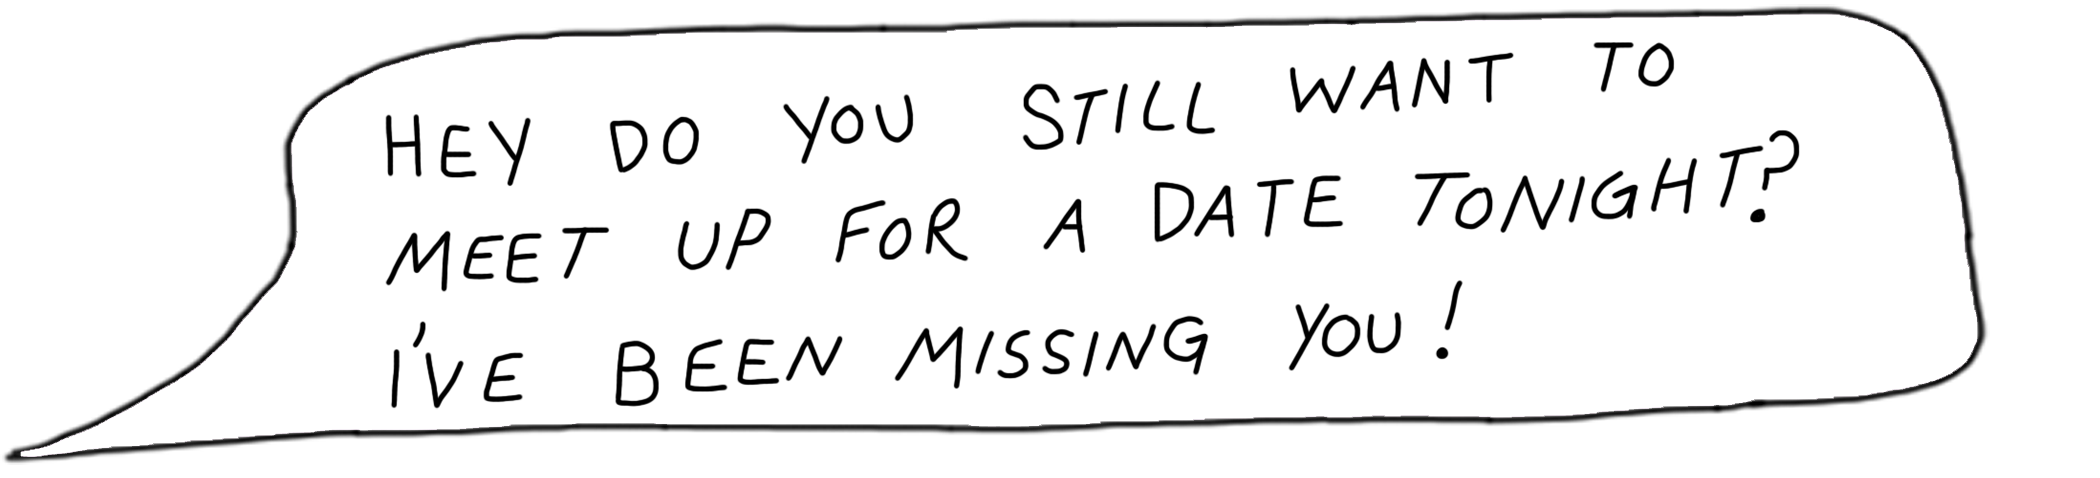 HEY DO YOU STILL WANT TO
MEET UP FOR A DATE TONIGHT?
I'VE BEEN MISSING YOU!